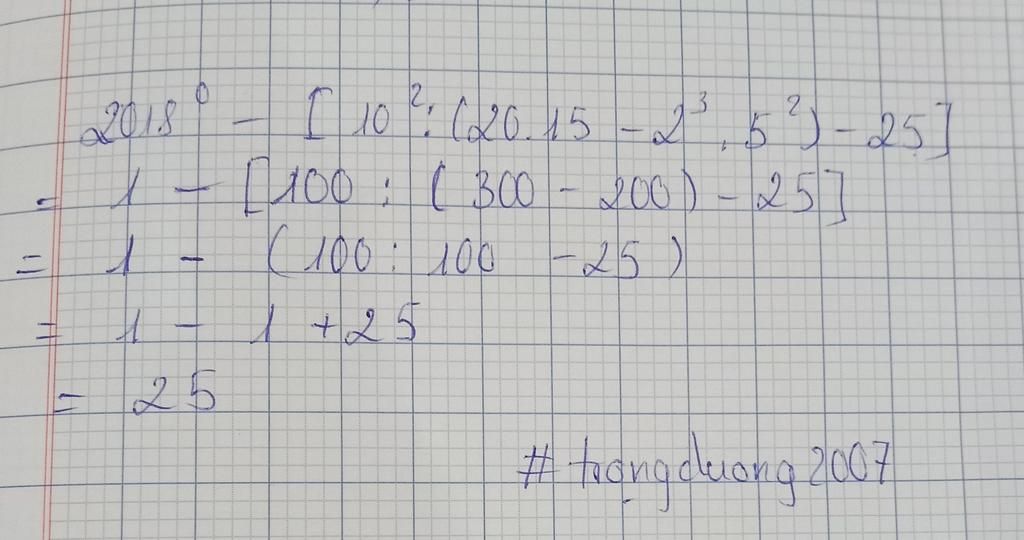 2018⁰ - [10² : (20.15 - 2³ . 5²) - 25]
= 1 - [100 : (300 - 200) - 25]
= 1 - (100 : 100 - 25)
= 1 - 1 + 25
= 25
# trọngduong2007